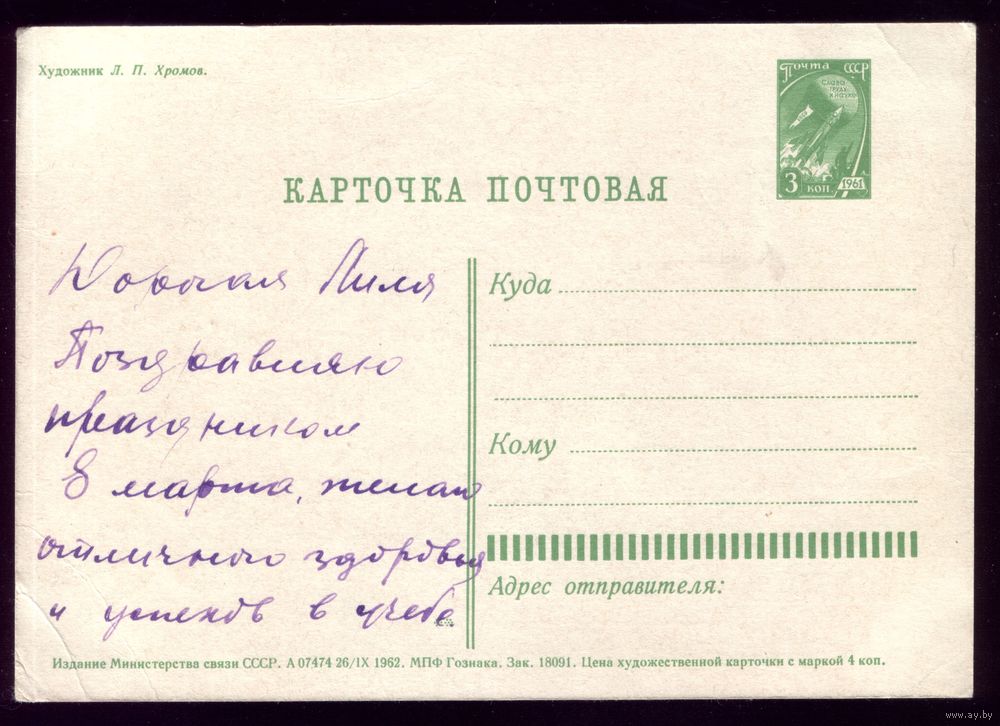 Художник Л. П. Хромов.
Почта СССР
СЛАВА
ТРУДУ
И НАУКЕ
3 КОП. 1961
КАРТОЧКА ПОЧТОВАЯ
Дорогая Лиля
Поздравляю
праздником
8 марта, желаю
отличного здоровья
и успехов в учебе
Куда
Кому
Адрес отправителя:
Издание Министерства связи СССР. А 07474 26/IX 1962. МПФ Гознака. Зак. 18091. Цена художественной карточки с маркой 4 коп.
www.ay.by